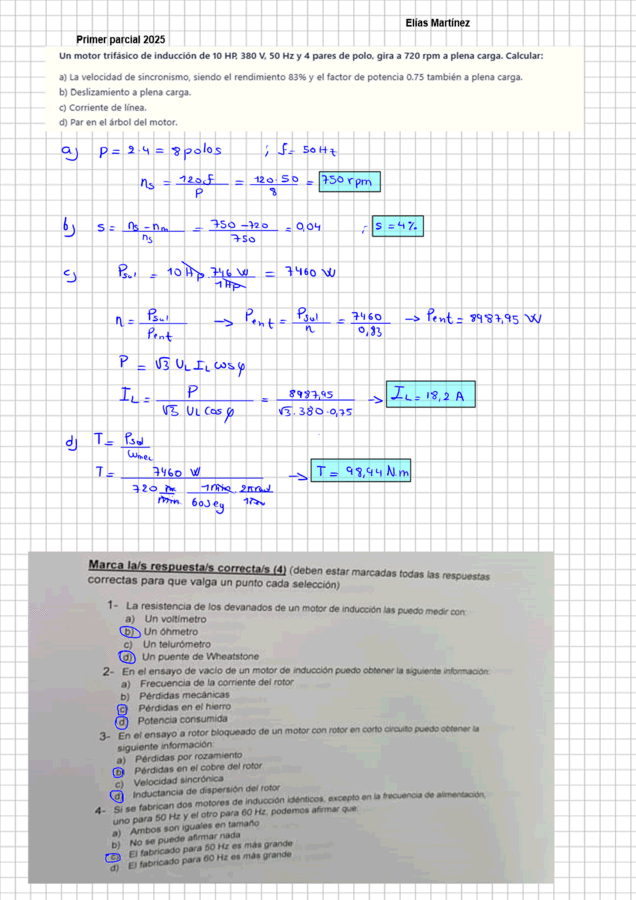 Elías Martínez
Primer parcial 2025
Un motor trifásico de inducción de 10 HP, 380 V, 50 Hz y 4 pares de polo, gira a 720 rpm a plena carga. Calcular:
a) La velocidad de sincronismo, siendo el rendimiento 83% y el factor de potencia 0.75 también a plena carga.
b) Deslizamiento a plena carga.
c) Corriente de línea.
d) Par en el árbol del motor.
a) P = 2·4 = 8 polos ; f = 50 Hz
ns = 120.f / P = 120.50 / 8 = 750 rpm
b) s = ns - nm / ns = 750 - 720 / 750 = 0,04 ; s = 4%
c) Psal = 10 Hp . 746 W / 1 Hp = 7460 W
η = Psal / Pent → Pent = Psal / η = 7460 / 0,83 → Pent = 8987,95 W
P = √3 UL IL cos φ
IL = P / √3 UL cos φ = 8987,95 / √3 . 380 . 0,75 → IL = 18,2 A
d) T = Psal / ωmec
T = 7460 W / 720 rev/min . 1 min/60 seg . 2π rad/1 rev → T = 98,94 N.m
Marca la/s respuesta/s correcta/s (4) (deben estar marcadas todas las respuestas
correctas para que valga un punto cada selección)
1- La resistencia de los devanados de un motor de inducción las puedo medir con:
a) Un voltímetro
b) Un óhmetro
c) Un telurómetro
d) Un puente de Wheatstone
2- En el ensayo de vacío de un motor de inducción puedo obtener la siguiente información:
a) Frecuencia de la corriente del rotor
b) Pérdidas mecánicas
c) Pérdidas en el hierro
d) Potencia consumida
3- En el ensayo a rotor bloqueado de un motor con rotor en corto circuito puedo obtener la
siguiente información:
a) Pérdidas por rozamiento
b) Pérdidas en el cobre del rotor
c) Velocidad sincrónica
d) Inductancia de dispersión del rotor
4- Si se fabrican dos motores de inducción idénticos, excepto en la frecuencia de alimentación,
uno para 50 Hz y el otro para 60 Hz, podemos afirmar que:
a) Ambos son iguales en tamaño
b) No se puede afirmar nada
c) El fabricado para 50 Hz es más grande
d) El fabricado para 60 Hz es más grande